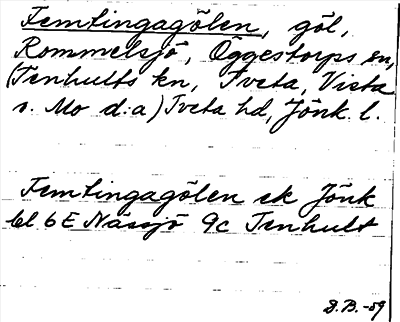 Femtingagölen, göl,
Rommelsjö, Öggestorps sn,
(Tenhults kn, Tveta, Vista
o. Mo d:a) Tveta hd, Jönk. l.
Femtingagölen ek Jönk
bl 6E Nässjö 9c Tenhult
D.B.-59